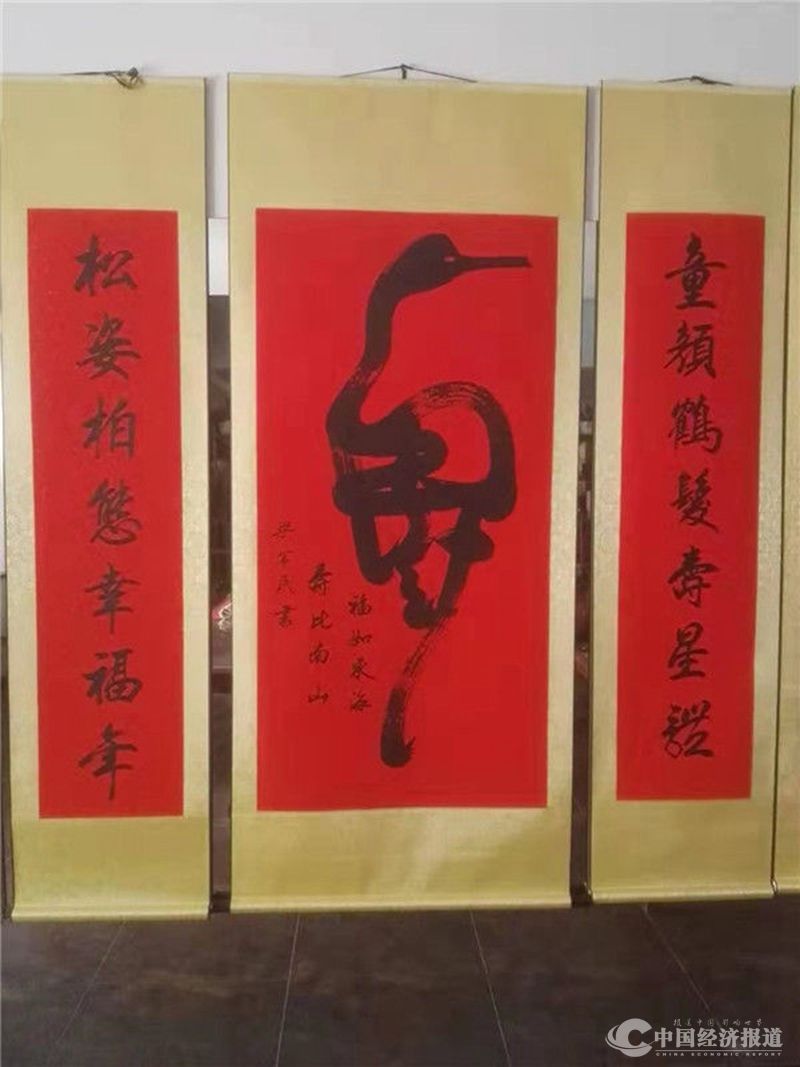 童顔鶴髮壽星體
福如东海
寿比南山
松姿柏態幸福年
中国经济报道
CHINA ECONOMIC REPORT